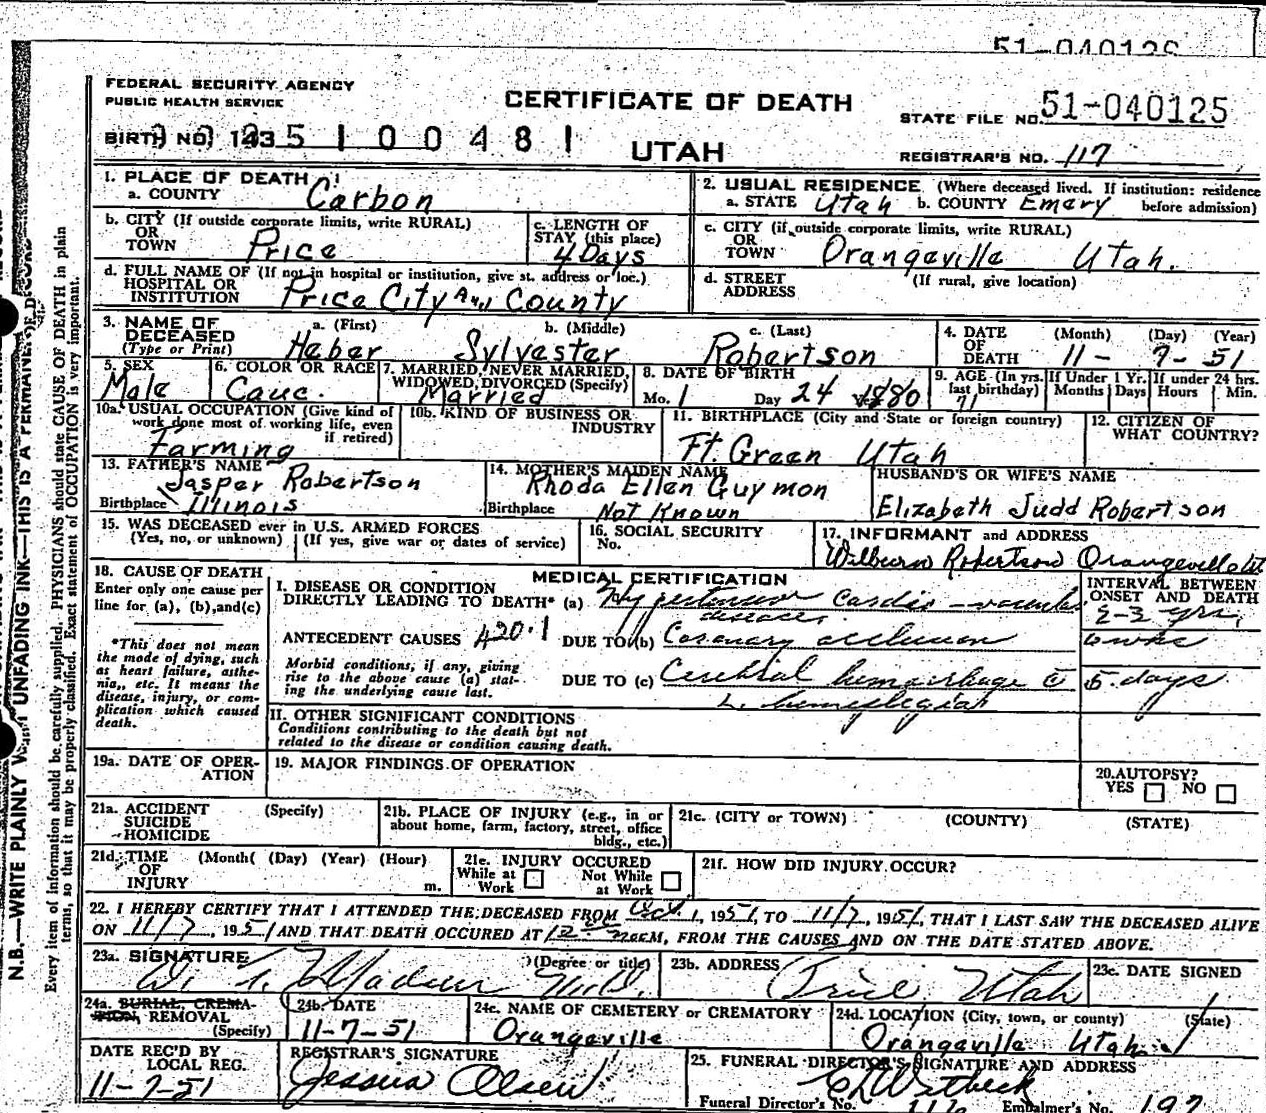 51-040126
FEDERAL SECURITY AGENCY
PUBLIC HEALTH SERVICE
CERTIFICATE OF DEATH
STATE FILE NO. 51-040125
BIRTH NO. 143 5100481
UTAH
REGISTRAR'S NO. 117
1. PLACE OF DEATH
a. COUNTY Carbon
2. USUAL RESIDENCE (Where deceased lived. If institution: residence before admission)
a. STATE Utah b. COUNTY Emery
b. CITY (If outside corporate limits, write RURAL) OR TOWN Price
c. LENGTH OF STAY (this place) 4 Days
c. CITY (if outside corporate limits, write RURAL) OR TOWN Orangeville Utah.
d. FULL NAME OF (If not in hospital or institution, give st. address or loc.) HOSPITAL OR INSTITUTION Price City And County
d. STREET ADDRESS (If rural, give location)
3. NAME OF DECEASED (Type or Print)
a. (First) Heber b. (Middle) Sylvester c. (Last) Robertson
4. DATE OF DEATH (Month) (Day) (Year) 11-7-51
5. SEX Male
6. COLOR OR RACE Cauc.
7. MARRIED, NEVER MARRIED, WIDOWED, DIVORCED (Specify) Married
8. DATE OF BIRTH Mo. 1 Day 24 1880
9. AGE (In yrs. last birthday) 71 If Under 1 Yr. Months Days If under 24 hrs. Hours Min.
10a. USUAL OCCUPATION (Give kind of work done most of working life, even if retired) Farming
10b. KIND OF BUSINESS OR INDUSTRY
11. BIRTHPLACE (City and State or foreign country) Ft. Green Utah
12. CITIZEN OF WHAT COUNTRY?
13. FATHER'S NAME Jasper Robertson
Birthplace Illinois
14. MOTHER'S MAIDEN NAME Rhoda Ellen Guymon
Birthplace Not Known
HUSBAND'S OR WIFE'S NAME Elizabeth Judd Robertson
15. WAS DECEASED ever in U.S. ARMED FORCES
(Yes, no, or unknown) (If yes, give war or dates of service)
16. SOCIAL SECURITY No.
17. INFORMANT and ADDRESS
Wilburn Robertson Orangeville Ut
18. CAUSE OF DEATH
Enter only one cause per line for (a), (b), and (c)
*This does not mean the mode of dying, such as heart failure, asthenia, etc. It means the disease, injury, or complication which caused death.
MEDICAL CERTIFICATION
INTERVAL BETWEEN ONSET AND DEATH
I. DISEASE OR CONDITION DIRECTLY LEADING TO DEATH* (a) Hypertensive cardio-vascular disease 2-3 yrs.
ANTECEDENT CAUSES 420.1 DUE TO (b) Coronary occlusion wks
Morbid conditions, if any, giving rise to the above cause (a) stating the underlying cause last.
DUE TO (c) Cerebral hemorrhage c̄ L. hemiplegia 5 days
II. OTHER SIGNIFICANT CONDITIONS
Conditions contributing to the death but not related to the disease or condition causing death.
19a. DATE OF OPERATION
19. MAJOR FINDINGS OF OPERATION
20. AUTOPSY? YES NO
21a. ACCIDENT SUICIDE HOMICIDE (Specify)
21b. PLACE OF INJURY (e.g., in or about home, farm, factory, street, office bldg., etc.)
21c. (CITY or TOWN) (COUNTY) (STATE)
21d. TIME OF INJURY (Month( (Day) (Year) (Hour) m.
21e. INJURY OCCURED While at Work Not While at Work
21f. HOW DID INJURY OCCUR?
22. I HEREBY CERTIFY THAT I ATTENDED THE DECEASED FROM Oct 1, 1951, TO 11/7, 1951, THAT I LAST SAW THE DECEASED ALIVE
ON 11/7, 1951 AND THAT DEATH OCCURED AT 12 noon M, FROM THE CAUSES AND ON THE DATE STATED ABOVE.
23a. SIGNATURE (Degree or title) M.D.
23b. ADDRESS Price Utah
23c. DATE SIGNED
24a. BURIAL, CREMATION, REMOVAL (Specify)
24b. DATE 11-7-51
24c. NAME OF CEMETERY or CREMATORY Orangeville
24d. LOCATION (City, town, or county) (State) Orangeville Utah
DATE REC'D BY LOCAL REG. 11-7-51
REGISTRAR'S SIGNATURE Jessica Olsen
25. FUNERAL DIRECTOR'S SIGNATURE AND ADDRESS
Funeral Director's No. Embalmer's No. 192
N.B.—WRITE PLAINLY WITH UNFADING INK—THIS IS A PERMANENT RECORD
Every item of information should be carefully supplied. PHYSICIANS should state CAUSE OF DEATH in plain
terms, so that it may be properly classified. Exact statement of OCCUPATION is very important.